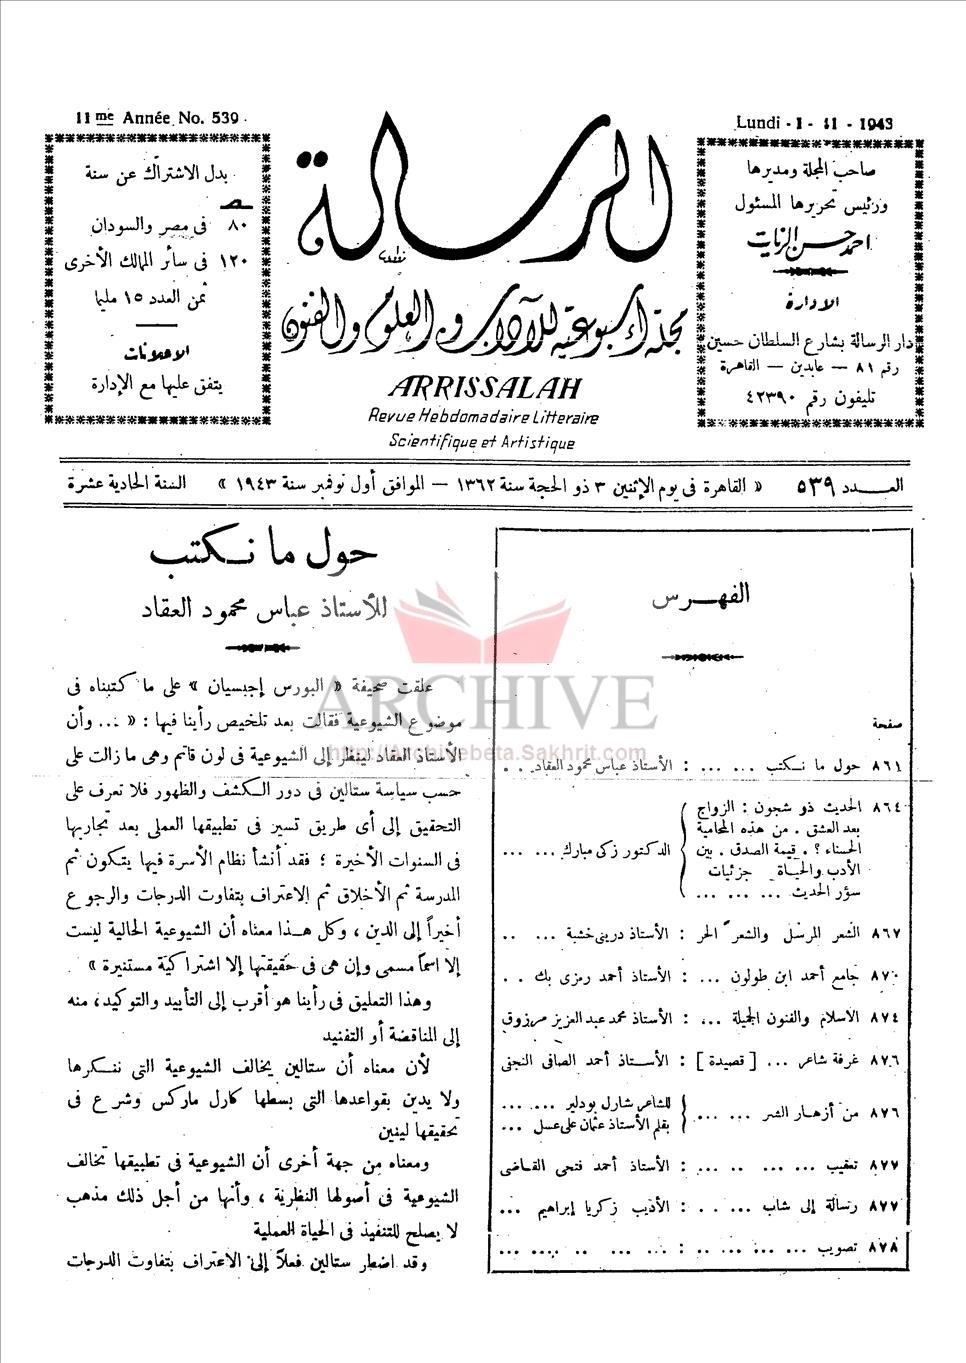 11me Année No. 539
Lundi - 1 - 11 - 1943
بدل الاشتراك عن سنة
٨٠ فى مصر والسودان
١٢٠ فى سائر الممالك الأخرى
ثمن العدد ١٥ مليما
الاعلانات
يتفق عليها مع الإدارة
الرسالة
مجلة أسبوعية للآداب والعلوم والفنون
ARRISSALAH
Revue Hebdomadaire Litteraire
Scientifique et Artistique
صاحب المجلة ومديرها
ورئيس تحريرها المسئول
احمد حسن الزيات
الادارة
دار الرسالة بشارع السلطان حسين
رقم ٨١ — عابدين — القاهرة
تليفون رقم ٤٢٣٩٠
العـــدد ٥٣٩ « القاهرة فى يوم الإثنين ٣ ذو الحجة سنة ١٣٦٢ — الموافق أول نوفمبر سنة ١٩٤٣ » السنة الحادية عشرة
الفهـرس
صفحة
٨٦١ حول ما نـكتب ... ... : الأستاذ عباس محمود العقاد . .
٨٦٤ الحديث ذو شجون : الزواج
بعد العشق . من هذه المحامية
الحسناء ؟ . قيمة الصدق . بين
الأدب والحياة جزئيات
سؤر الحديث ... ... ...
الدكتور زكى مبارك ... ...
٨٦٧ الشعر المرسل والشعر الحر : الأستاذ درينى خشبة ... ..
٨٧٠ جامع أحمد ابن طولون ... : الأستاذ أحمد رمزى بك . .
٨٧٤ الاسلام والفنون الجميلة ... : الأستاذ محمد عبد العزيز مرزوق
٨٧٦ غرفة شاعر ... [ قصيدة ] : الأســتاذ أحمد الصافى النجفى
٨٧٦ من أزهـار الشر ... ...
للشاعر شارل بودلير ... ...
بقلم الأستاذ عثمان على عسل ...
٨٧٧ تعقيب ... ... .. ... : الأستاذ أحمد فتحى القـاضى
٨٧٧ رسالة إلى شاب ... .. . : الأديب زكريا إبراهيم ...
٨٧٨ تصويب ... ... ... .. : .. ... ... .. ... ...
حول ما نـكتب
للأستاذ عباس محمود العقاد
علقت صحيفة « البورس إجبسيان » على ما كتبناه فى
موضوع الشيوعية فقالت بعد تلخيص رأينا فيها : « ... وأن
الأستاذ العقاد لينظر إلى الشيوعية فى لون قاتم وهى ما زالت على
حسب سياسة ستالين فى دور الـكشف والظهور فلا تعرف على
التحقيق إلى أى طريق تسير فى تطبيقها العملى بعد تجاربها
فى السنوات الأخيرة ؛ فقد أنشأ نظام الأسرة فيها يتكون ثم
المدرسة ثم الأخلاق ثم الاعتراف بتفاوت الدرجات والرجوع
أخيراً إلى الدين ، وكل هـذا معناه أن الشيوعية الحالية ليست
إلا اسماً مسمى وإن هى فى حقيقتها إلا اشتراكية مستنيرة »
وهذا التعليق فى رأينا هو أقرب إلى التأييد والتوكيد، منه
إلى المناقضة أو التفنيد
لأن معناه أن ستالين يخالف الشيوعية التى ننـكرها
ولا يدين بقواعدها التى بسطها كارل ماركس وشرع فى
تحقيقها لينين
ومعناه من جهة أخرى أن الشيوعية فى تطبيقها تخالف
الشيوعية فى أصولها النظرية ، وأنها من أجل ذلك مذهب
لا يصلح للتنفيذ فى الحياة العملية
وقد اضطر ستالين فعلاً إلى الاعتراف بتفاوت الدرجات
ARCHIVE
http://Archivebeta.Sakhrit.com